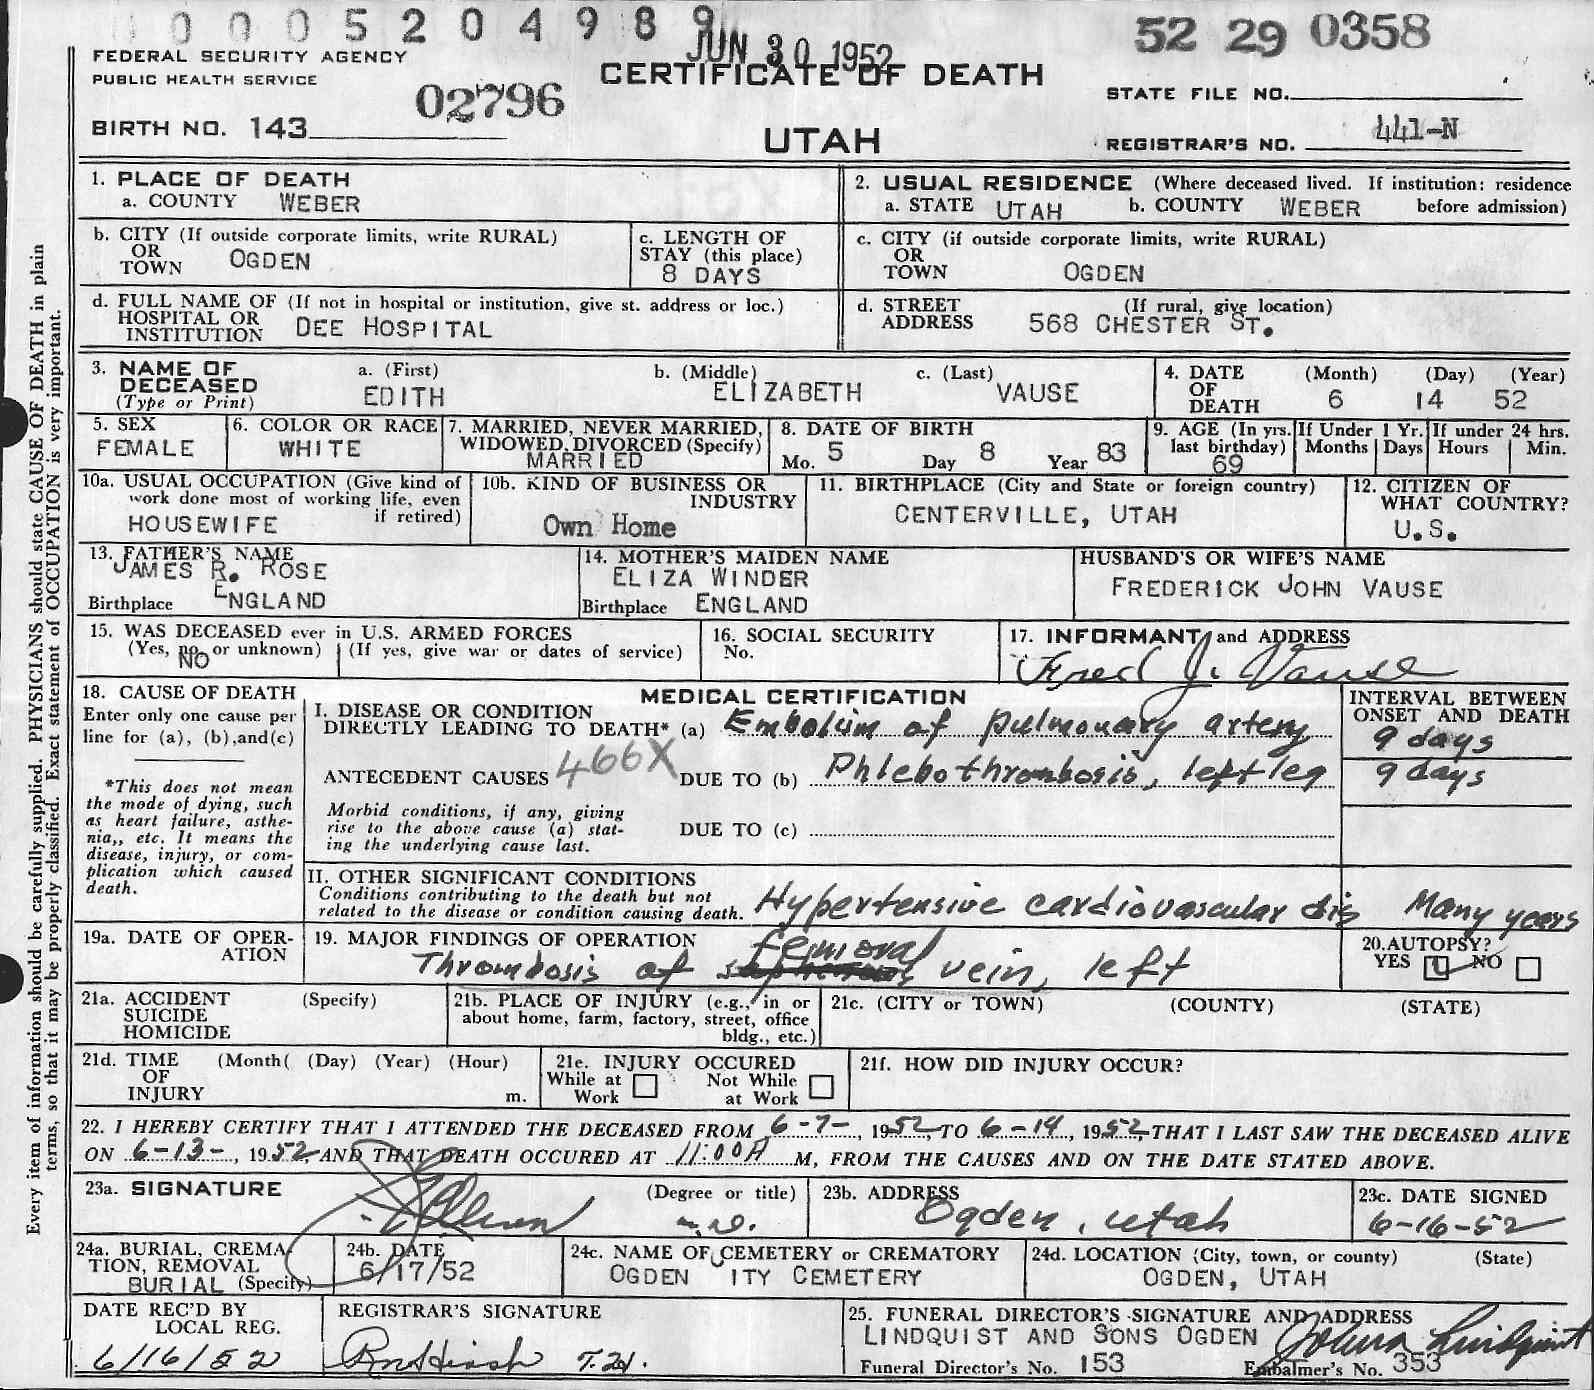 0 0 0 5 2 0 4 9 8 9
JUN 30 1952
52 29 0358
FEDERAL SECURITY AGENCY
PUBLIC HEALTH SERVICE
CERTIFICATE OF DEATH
02796
STATE FILE NO.
BIRTH NO. 143
UTAH
REGISTRAR'S NO. 441-N
Every item of information should be carefully supplied. PHYSICIANS should state CAUSE OF DEATH in plain
terms, so that it may be properly classified. Exact statement of OCCUPATION is very important.
1. PLACE OF DEATH
a. COUNTY WEBER
2. USUAL RESIDENCE (Where deceased lived. If institution: residence
a. STATE UTAH b. COUNTY WEBER before admission)
b. CITY (If outside corporate limits, write RURAL)
OR
TOWN OGDEN
c. LENGTH OF
STAY (this place)
8 DAYS
c. CITY (if outside corporate limits, write RURAL)
OR
TOWN OGDEN
d. FULL NAME OF (If not in hospital or institution, give st. address or loc.)
HOSPITAL OR
INSTITUTION DEE HOSPITAL
d. STREET (If rural, give location)
ADDRESS 568 CHESTER ST.
3. NAME OF
DECEASED
(Type or Print)
a. (First) b. (Middle) c. (Last)
EDITH ELIZABETH VAUSE
4. DATE (Month) (Day) (Year)
OF
DEATH 6 14 52
5. SEX
FEMALE
6. COLOR OR RACE
WHITE
7. MARRIED, NEVER MARRIED,
WIDOWED, DIVORCED (Specify)
MARRIED
8. DATE OF BIRTH
Mo. 5 Day 8 Year 83
9. AGE (In yrs.
last birthday)
69
If Under 1 Yr.
Months Days
If under 24 hrs.
Hours Min.
10a. USUAL OCCUPATION (Give kind of
work done most of working life, even
if retired)
HOUSEWIFE
10b. KIND OF BUSINESS OR
INDUSTRY
Own Home
11. BIRTHPLACE (City and State or foreign country)
CENTERVILLE, UTAH
12. CITIZEN OF
WHAT COUNTRY?
U.S.
13. FATHER'S NAME
JAMES R. ROSE
Birthplace ENGLAND
14. MOTHER'S MAIDEN NAME
ELIZA WINDER
Birthplace ENGLAND
HUSBAND'S OR WIFE'S NAME
FREDERICK JOHN VAUSE
15. WAS DECEASED ever in U.S. ARMED FORCES
(Yes, no, or unknown) (If yes, give war or dates of service)
NO
16. SOCIAL SECURITY
No.
17. INFORMANT and ADDRESS
Fred J. Vause
18. CAUSE OF DEATH
Enter only one cause per
line for (a), (b), and (c)
*This does not mean
the mode of dying, such
as heart failure, asthe-
nia,, etc. It means the
disease, injury, or com-
plication which caused
death.
MEDICAL CERTIFICATION
I. DISEASE OR CONDITION
DIRECTLY LEADING TO DEATH* (a) Embolism of pulmonary artery
INTERVAL BETWEEN
ONSET AND DEATH
9 days
ANTECEDENT CAUSES 466X DUE TO (b) Phlebothrombosis, left leg
9 days
Morbid conditions, if any, giving
rise to the above cause (a) stat-
ing the underlying cause last.
DUE TO (c)
II. OTHER SIGNIFICANT CONDITIONS
Conditions contributing to the death but not
related to the disease or condition causing death.
Hypertensive cardiovascular dis Many years
19a. DATE OF OPER-
ATION
19. MAJOR FINDINGS OF OPERATION
femoral
Thrombosis of vein, left
20. AUTOPSY?
YES NO
21a. ACCIDENT (Specify)
SUICIDE
HOMICIDE
21b. PLACE OF INJURY (e.g., in or
about home, farm, factory, street, office
bldg., etc.)
21c. (CITY or TOWN) (COUNTY) (STATE)
21d. TIME (Month( (Day) (Year) (Hour)
OF
INJURY m.
21e. INJURY OCCURED
While at Work Not While at Work
21f. HOW DID INJURY OCCUR?
22. I HEREBY CERTIFY THAT I ATTENDED THE DECEASED FROM 6-7-, 1952, TO 6-14, 1952, THAT I LAST SAW THE DECEASED ALIVE
ON 6-13-, 1952, AND THAT DEATH OCCURED AT 11:00A M, FROM THE CAUSES AND ON THE DATE STATED ABOVE.
23a. SIGNATURE (Degree or title)
m.D.
23b. ADDRESS
Ogden, Utah
23c. DATE SIGNED
6-16-52
24a. BURIAL, CREMA-
TION, REMOVAL
BURIAL (Specify)
24b. DATE
6/17/52
24c. NAME OF CEMETERY or CREMATORY
OGDEN CITY CEMETERY
24d. LOCATION (City, town, or county) (State)
OGDEN, UTAH
DATE REC'D BY
LOCAL REG.
6/16/52
REGISTRAR'S SIGNATURE
25. FUNERAL DIRECTOR'S SIGNATURE AND ADDRESS
LINDQUIST AND SONS OGDEN
Funeral Director's No. 153 Embalmer's No. 353